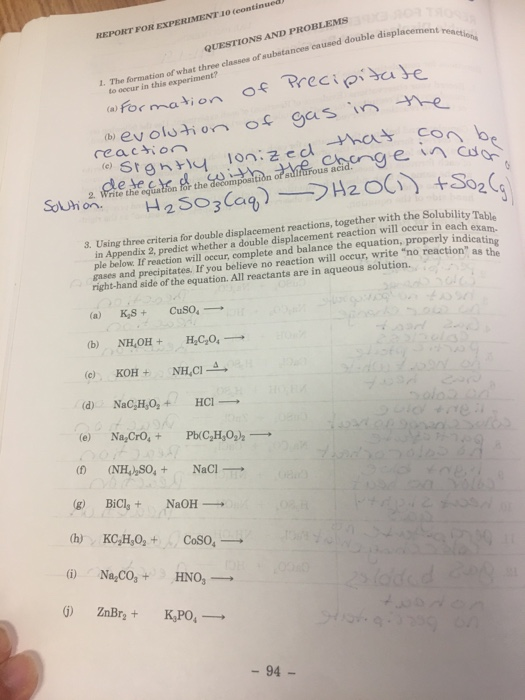 REPORT FOR EXPERIMENT 10 (continued)
QUESTIONS AND PROBLEMS
1. The formation of what three classes of substances caused double displacement reactions
to occur in this experiment?
(a) Formation of Precipitate
(b) evolution of gas in the
reaction
(c) Slightly Ionized that con be
detected with the change in color
2. Write the equation for the decomposition of sulfurous acid.
Solution. H2SO3(aq) → H2O(l) + SO2(g)
3. Using three criteria for double displacement reactions, together with the Solubility Table
in Appendix 2, predict whether a double displacement reaction will occur in each exam-
ple below. If reaction will occur, complete and balance the equation, properly indicating
gases and precipitates. If you believe no reaction will occur, write "no reaction" as the
right-hand side of the equation. All reactants are in aqueous solution.
(a) K₂S + CuSO₄ →
(b) NH₄OH + H₂C₂O₄ →
(c) KOH + NH₄Cl Δ→
(d) NaC₂H₃O₂ + HCl →
(e) Na₂CrO₄ + Pb(C₂H₃O₂)₂ →
(f) (NH₄)₂SO₄ + NaCl →
(g) BiCl₃ + NaOH →
(h) KC₂H₃O₂ + CoSO₄ →
(i) Na₂CO₃ + HNO₃ →
(j) ZnBr₂ + K₃PO₄ →
– 94 –